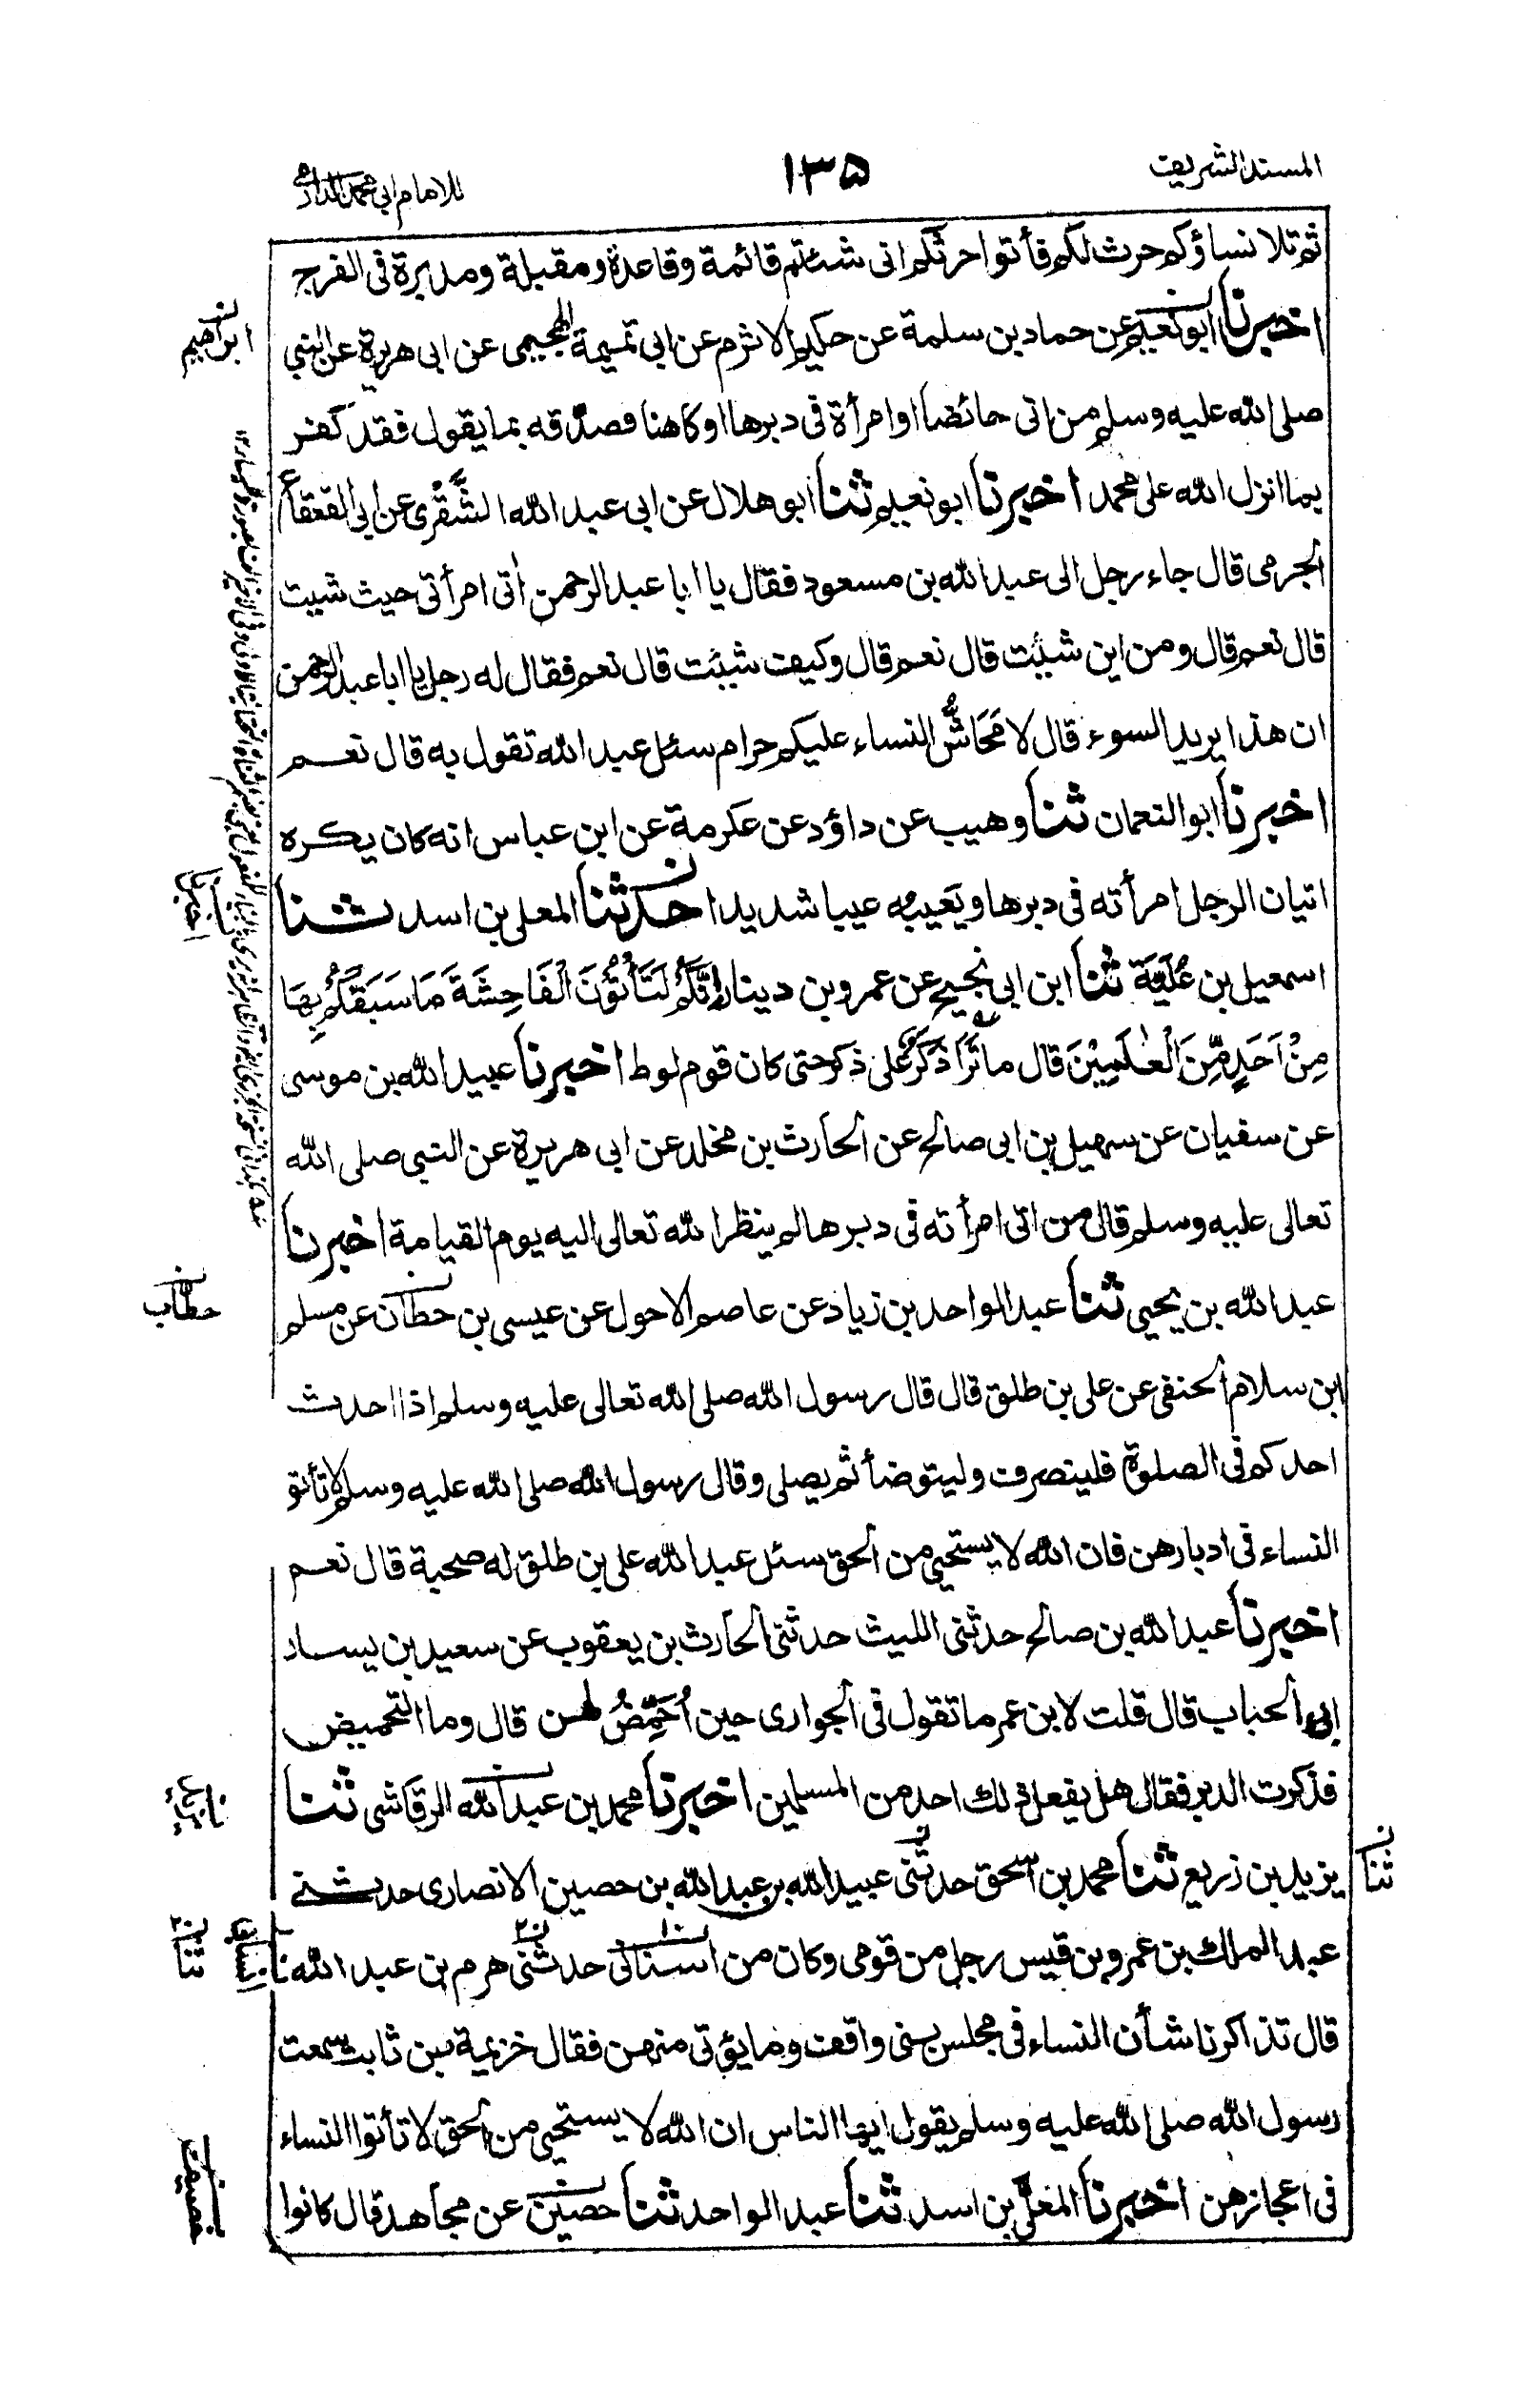 المسند الشريف
١٣٥
للامام ابي محمد الدارمي
ثم تلا نساؤكم حرث لكم فأتوا حرثكم انى شئتم قائمة وقاعدة ومقبلة ومدبرة فى الفرج
اخبرنا ابو نعيم عن حماد بن سلمة عن حكيم الاثرم عن ابى تميمة الهجيمى عن ابى هريرة عن النبي
ابراهيم
صلى الله عليه وسلم من اتى حائضا او امرأة فى دبرها او كاهنا فصدقه بما يقول فقد كفر
بما انزل الله على محمد اخبرنا ابو نعيم ثنا ابو هلال عن ابى عبد الله الشَّقْرى عن ابى القعقاع
الجرمى قال جاء رجل الى عبد الله بن مسعود فقال يا ابا عبد الرحمن أتى امرأتى حيث شيت
قال نعم قال ومن اين شئت قال نعم قال وكيف شئت قال نعم فقال له رجل يا ابا عبد الرحمن
ان هذا يريد السوء قال لا مَحَاشُّ النساء عليكم حرام سئل عبد الله تقول به قال نعم
اخبرنا ابو النعمان ثنا وهيب عن داؤد عن عكرمة عن ابن عباس انه كان يكره
اتيان الرجل امرأته فى دبرها ويعيبه عيبا شديدا حدثنا المعلى بن اسد ثنا
اخبرنا
اسمعيل بن عُلَيَّة ثنا ابن ابى نجيح عن عمرو بن دينار اِنَّكُمْ لَتَأْتُوْنَ الْفَاحِشَةَ مَا سَبَقَكُمْ بِهَا
مِنْ اَحَدٍ مِّنَ الْعٰلَمِيْنَ قال ما نَزَا ذَكَرٌ على ذكر حتى كان قوم لوط اخبرنا عبيد الله بن موسى
عن سفيان عن سهيل بن ابى صالح عن الحارث بن مخلد عن ابى هريرة عن النبي صلى الله
تعالى عليه وسلم قال من اتى امرأته فى دبرها لم ينظر الله تعالى اليه يوم القيامة اخبرنا
عبد الله بن يحيى ثنا عبد الواحد بن زياد عن عاصم الاحول عن عيسى بن حطان عن مسلم
حطاب
ابن سلام الحنفى عن على بن طلق قال قال رسول الله صلى الله تعالى عليه وسلم اذا احدث
احدكم فى الصلوة فلينصرف وليتوضأ ثم يصلى وقال رسول الله صلى الله عليه وسلم لا تأتو
النساء فى ادبارهن فان الله لا يستحيى من الحق سئل عبد الله على بن طلق له صحبة قال نعم
اخبرنا عبد الله بن صالح حدثنى الليث حدثنى الحارث بن يعقوب عن سعيد بن يسار
ابى الحباب قال قلت لابن عمر ما تقول فى الجوارى حين اُحَمِّضُ لهن قال وما التحميض
فذكرت الدبر فقال هل يفعل ذلك احد من المسلمين اخبرنا محمد بن عبد الله الرقاشى ثنا
يزيد بن زريع ثنا محمد بن اسحق حدثنى عبيد الله بن عبد الله بن حصين الانصارى حدثنى
ثنا
عبد الملك بن عمرو بن قيس رجل من قومى وكان من اسنانى حدثنى هرم بن عبد الله
ثنا
قال تذاكرنا شأن النساء فى مجلس بنى واقف وما يؤتى منهن فقال خزيمة بن ثابت سمعت
رسول الله صلى الله عليه وسلم يقول ايها الناس ان الله لا يستحيى من الحق لا تأتوا النساء
فى اعجازهن اخبرنا المعلى بن اسد ثنا عبد الواحد ثنا حصين عن مجاهد قال كانوا
خصيف